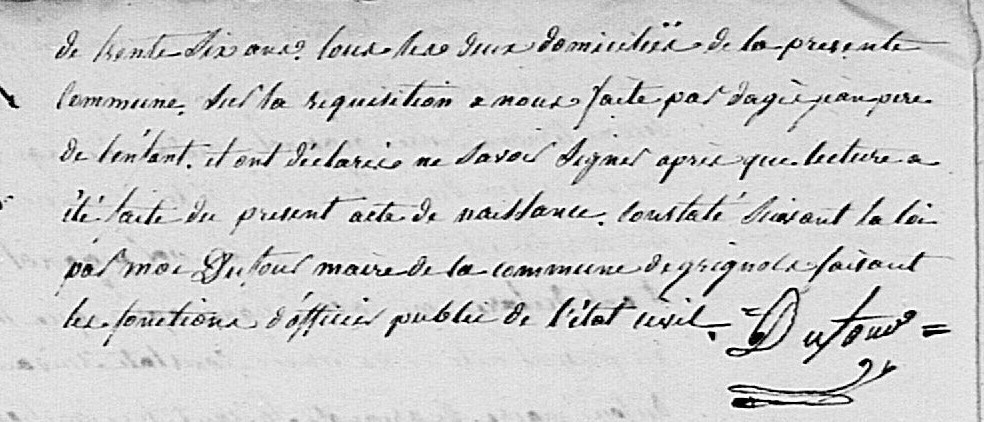 de trente Six ans. tous les deux domiciliës de la presente
Commune. Sur la requisition a nous faite par dagès jean pere
de l'enfant. et ont déclarés ne Savoir Signer après que lecture a
été faite du present acte de naissance. Constaté Suivant la loi
par moi Dufour maire de la commune de grignols faisant
les fonctions d'officier public de l'état civil. = Dufour =